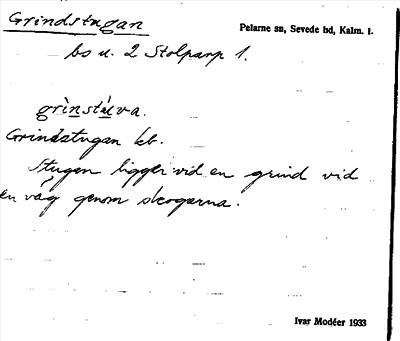 Grindstugan
Pelarne sn, Sevede hd, Kalm. l.
bs u. 2 Stolparp 1.
grinstùva.
Grindstugan kb.
Stugen ligger vid en grind vid
en väg genom skogarna.
Ivar Modéer 1933